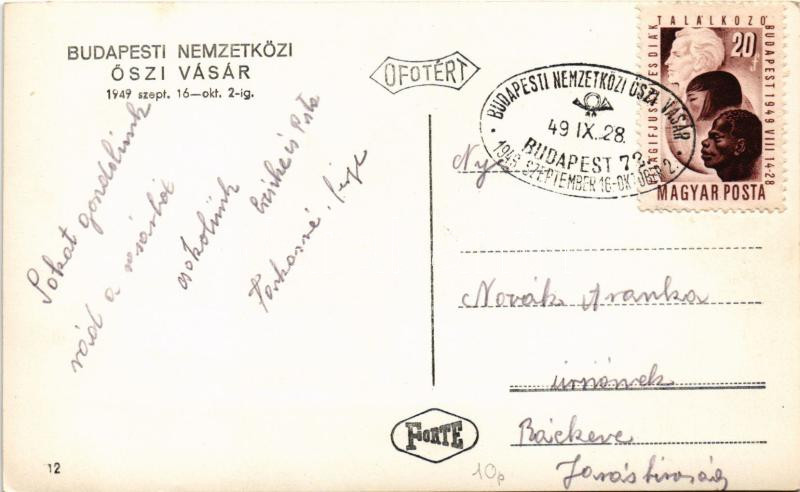 BUDAPESTI NEMZETKÖZI
ŐSZI VÁSÁR
1949 szept. 16—okt. 2-ig.
OFOTÉRT
Sokat gondolunk
rád a vásárból
csokolunk
Farkasné
BUDAPESTI NEMZETKÖZI ŐSZI VÁSÁR
49 IX. 28.
BUDAPEST 72
1949 SZEPTEMBER 16-OKTÓBER 2.
TALÁLKOZÓ
BUDAPEST 1949 VIII 14-28
20 f
MAGYAR POSTA
Novák Aranka
úrnőnek
Ráckeve
Járásbiróság
FORTE
12
10p